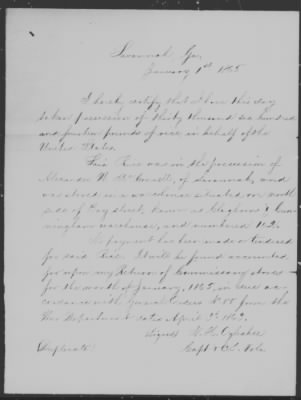 Savannah, Ga,
January 1st 1865
I hereby certify that I have this day
taken possession of thirty thousand six hundred
and fourteen pounds of rice in behalf of the
United States.
This Rice was in the possession of
Alexander N. of Savannah, and
was stored in a warehouse situated on north
side of Bay street, known as Claghorn & Cun-
ningham warehouse, and numbered 162.
No payment has been made or tendered
for said Rice. It will be found accounted
for upon my Return of Commissary stores
for the month of January, 1865, in due ac-
cordance with General Orders No from the
War Department dated April 2d 1862.
Signed
Capt & C.S. Vols.
(Duplicate)